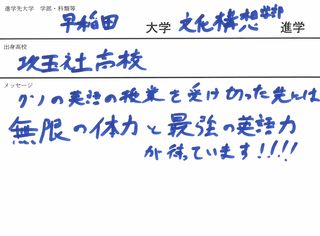 進学先大学 学部・科類等
早稲田 大学 文化構想学部 進学
出身高校
攻玉社高校
メッセージ
グノの英語の授業を受け切った先には
無限の体力と最強の英語力
が待っています!!!!